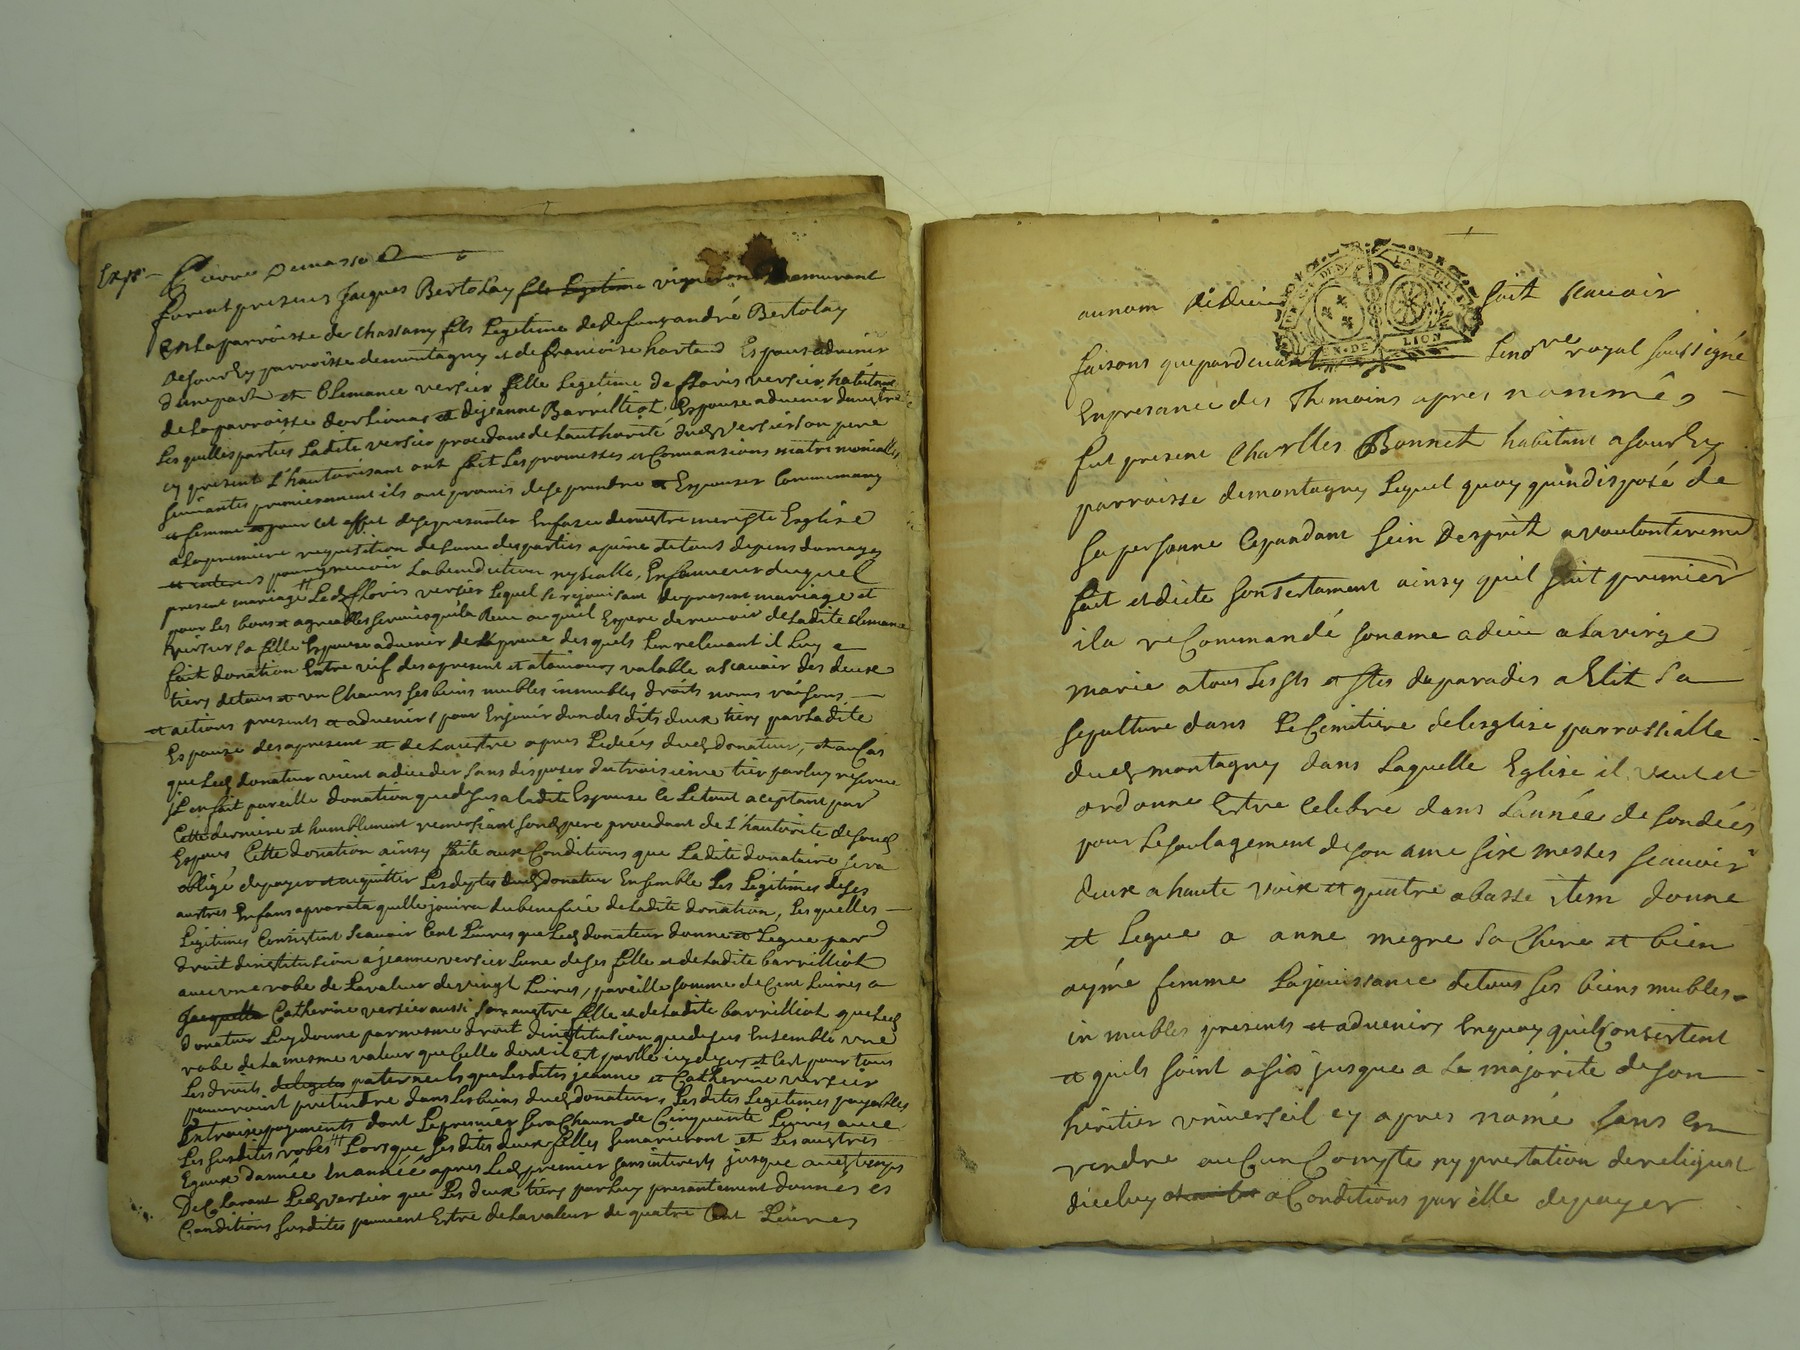 Exp.
Pierre Demasse
furent presens Jacques Bertolay fils legitime vigneron demurant
en la parroisse de chassamy fils legitime de defunt andré Bertolay
de sourdy parroisse de montagny et de francoise hartaud Espoux advenir
d'unepart et Clemance versier fille legitime de floris versier habitant
de la parroisse et de jeanne Barrilliot Espouse advenir d'austre
Lesquelles parties Ladite versier procedant de L'authorité dud versier son pere
cy present L'hautorisant ont fait les promesses et Convansions matrimonialles
suivantes premierement ils ont promis de se prendre et Espouser Comme mary
et femme et pour cet effet de se presenter En face de nostre mere ste Esglise
a la premiere requisition de l'une des parties a peine de tous depens domages
et interets pour y recevoir La benediction nupsialle, En faveur duquel
present mariage Led floris versier lequel se rejouissant du present mariage et
pour les bons et agreables services qu'il a Receu ou qu'il Espere de recevoir de ladite Clemance
versier sa fille Espouse advenir de la preuve des quels L'en relevant il luy a
fait donation Entre vif des a present et a toujours valable a scavoir des deux
tiers de tous et un Chacuns ses biens meubles immeubles droits noms raisons
et actions presents et advenirs pour En jouir d'un des dits deux tiers par Ladite
Espouse des a present et de L'austre apres Le decés dud donateur, et au cas
que Led donateur vient a deceder sans disposer du troisieme tier par luy reservé
Il en fait pareille donation que dessus a ladite Espouse ce Le tout aceptant par
Cette derniere et humblement remerciant sond pere procedant de L'hautorité de soud
Espoux Cette donation ainsy faite aux Conditions que Ladite donataire sera
obligé de payer et aquitter Les deptes dud donateur Ensemble Les Legitimes de ses
austres Enfans a prorata quelle jouira du benefice de Ladite donation, Les quelles
Legitimes Consistent Scavoir Cent Livres que Led donateur donne et Legue par
droit d'institution a jeanne versier L'une de ses fille et de Ladite barrilliot
avec une robe de La valeur de vingt Livres, pareille somme de Cent Livres a
Jacquette Catherine versier aussi son austre fille et de Ladite barrilliot que Led
donateur Luy donne par mesme droit d'institution que dessus Ensemble une
robe de La mesme valeur que Celle dont il est parllé icy dessus et C'est pour tous
Les droits paternels que Lesdites jeanne et Catherine versier
pourroint pretendre dans Les biens dud donateur, Lesdites Legitimes payables
En trois payements dont Le premier sera Chacun de Cinquante Livres avec
Les susdites robes Lorsque Lesdites deux filles se marieront et Les austres
Egaux d'année En année apres Led premier sans interests jusque aux temps
Declarant Led versier que Les deux tiers par Luy presantement donnés es
Conditions susdites peuvent Estre de La valeur de quatre Cent Livres
au nom de Dieu soit scavoir
GEN·DE LION
faisons que pardevant Le no.re royal soussigné
En presance des Thmoins apres nommés
fut present Charlles Bonnet habitant a sourdy
parroisse de montagny Lequel quoy qu'indisposé de
sa personne Cepandant sein d'esprit a voulontiremt
fait et dicte son Testament ainsy quil suit premier
il a reCommandé son ame a dieu a La virge
marie a tous Les sts et stes du paradis a Elit sa
sepulture dans Le Cimitiere de l'esglise parrossialle
dud montagny dans Laquelle Eglise il veut et
ordonne Estre Celebré dans L'année de son décés
pour Le soulagement de son ame six messes scavoir
deux a haute voix et quatre a basse item donne
et Legue a anne megre sa Chere et bien
aymé femme La jouissance de tous ses biens mubles
inmubles presents et advenirs En quoy quil Consistent
et quils soint asis jusque a La majorité de son
héritier universeil cy apres nomé sans En
rendre aucun Compte ny prestation de reliquat
diceluy a Conditions par elle de payer